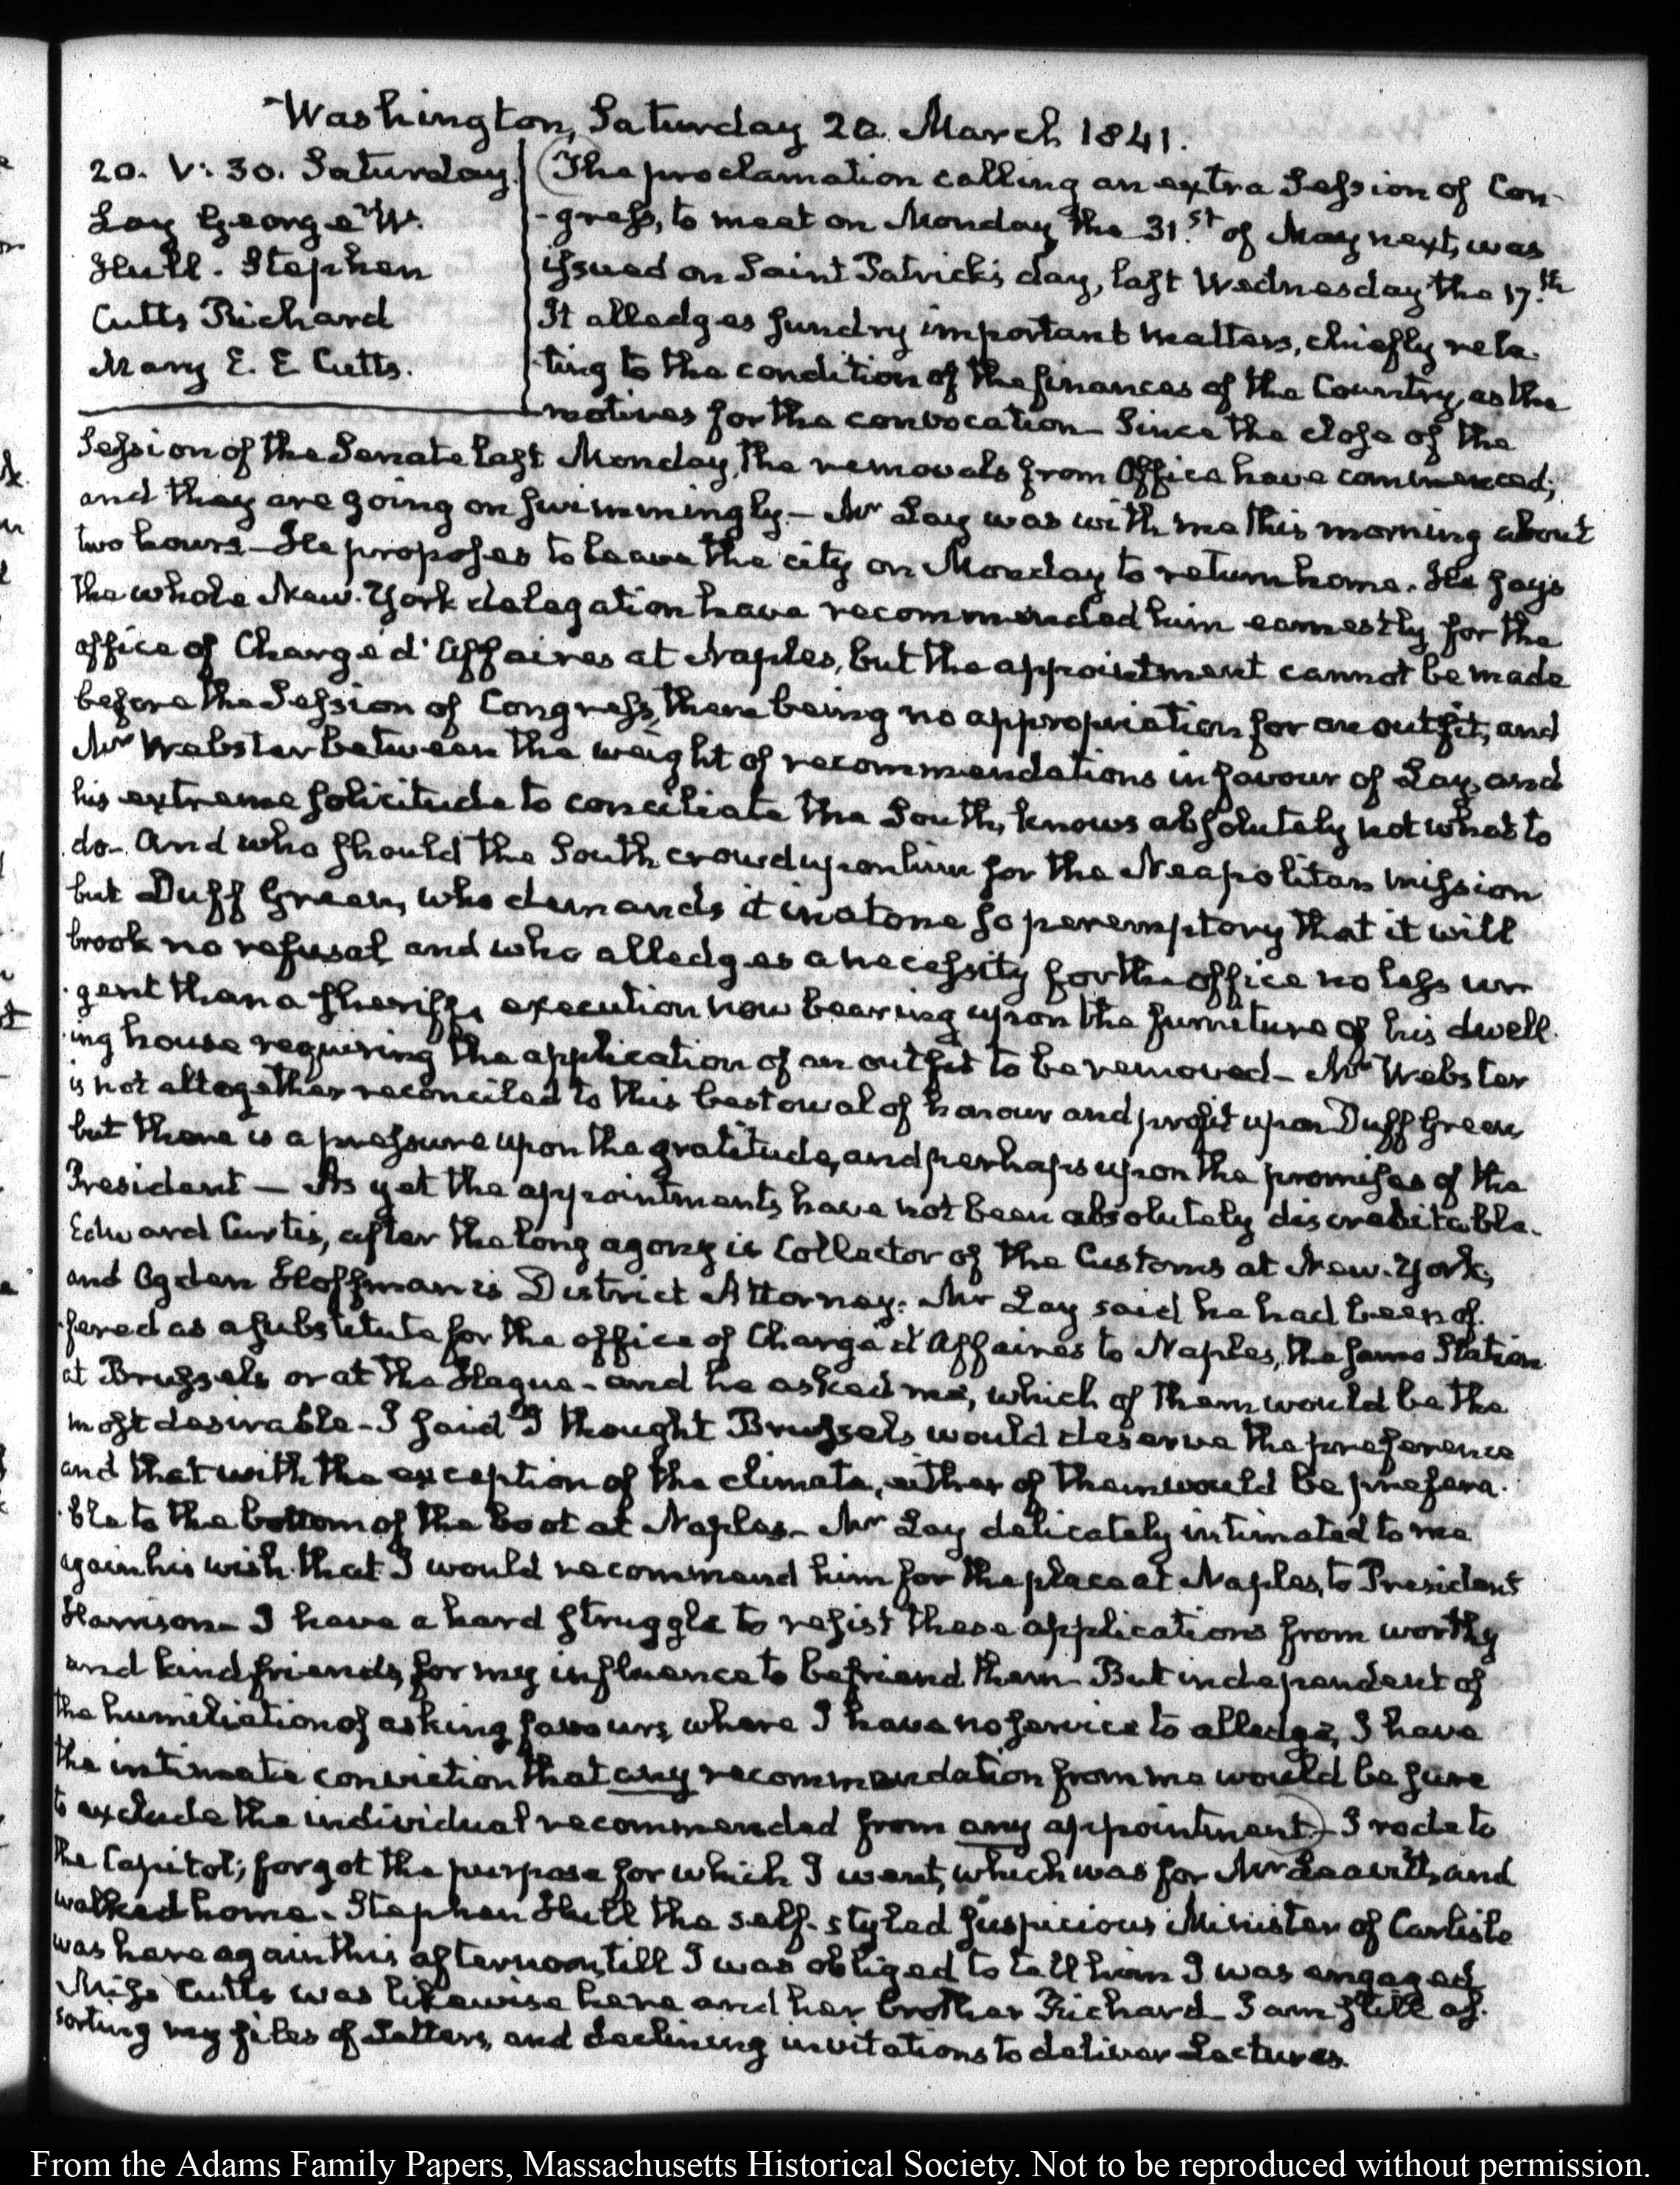 Washington, Saturday 20. March 1841.
20. V: 30. Saturday.
Lay George W.
Hull. Stephen
Cutts Richard
Mary E. E Cutts.
The proclamation calling an extra Session of Con-
-gress, to meet on Monday the 31.st of May next, was
issued on Saint Patrick's day, last Wednesday the 17.th
It alledges sundry important matters, chiefly rela-
-ting to the condition of the finances of the Country, as the
motives for the convocation- Since the close of the
Session of the Senate last Monday, the removals from Office have commenced;
and they are going on swimmingly.- Mr Lay was with me this morning about
two hours- He proposes to leave the city on Monday to return home. He says
the whole New-York delegation have recommended him earnestly for the
office of Chargé d'Affaires at Naples, but the appointment cannot be made
before the Session of Congress, there being no appropriation for an outfit, and
Mr Webster between the weight of recommendations in favour of Lay, and
his extreme solicitude to conciliate the South, knows absolutely not what to
do- And who should the South crowd upon him for the Neapolitan mission
but Duff Green, who demands it in a tone so peremptory that it will
brook no refusal and who alledges a necessity for the office no less ur-
-gent than a sheriff's execution now bearing upon the furniture of his dwell-
-ing house requiring the application of an outfit to be removed- Mr Webster
is not altogether reconciled to this bestowal of honour and profit upon Duff Green,
but there is a pressure upon the gratitude, and perhaps upon the promises of the
President — As yet the appointments have not been absolutely discreditable-
Edward Curtis, after the long agony is Collector of the Customs at New-York,
and Ogden Hoffman is District Attorney. Mr Lay said he had been of-
-fered as a substitute for the office of Chargé d'Affaires to Naples, the same Station
at Brussels or at the Hague- and he asked me, which of them would be the
most desirable- I said I thought Brussels would deserve the preference
and that with the exception of the climate, either of them would be prefera-
-ble to the bottom of the boot at Naples- Mr Lay delicately intimated to me
again his wish that I would recommend him for the place at Naples, to President
Harrison- I have a hard struggle to resist these applications from worthy
and kind friends, for my influence to befriend them- But independent of
the humiliation of asking favours, where I have no service to alledge, I have
the intimate conviction that any recommendation from me would be sure
to exclude the individual recommended from any appointment.- I rode to
the Capitol; forgot the purpose for which I went, which was for Mr Leavitt, and
walked home- Stephen Hull the self-styled suspicious Minister of Carlisle
was here again this afternoon, till I was obliged to tell him I was engaged
Miss Cutts was likewise here and her brother Richard- I am still as-
sorting my files of Letters, and declining invitations to deliver Lectures.
From the Adams Family Papers, Massachusetts Historical Society. Not to be reproduced without permission.